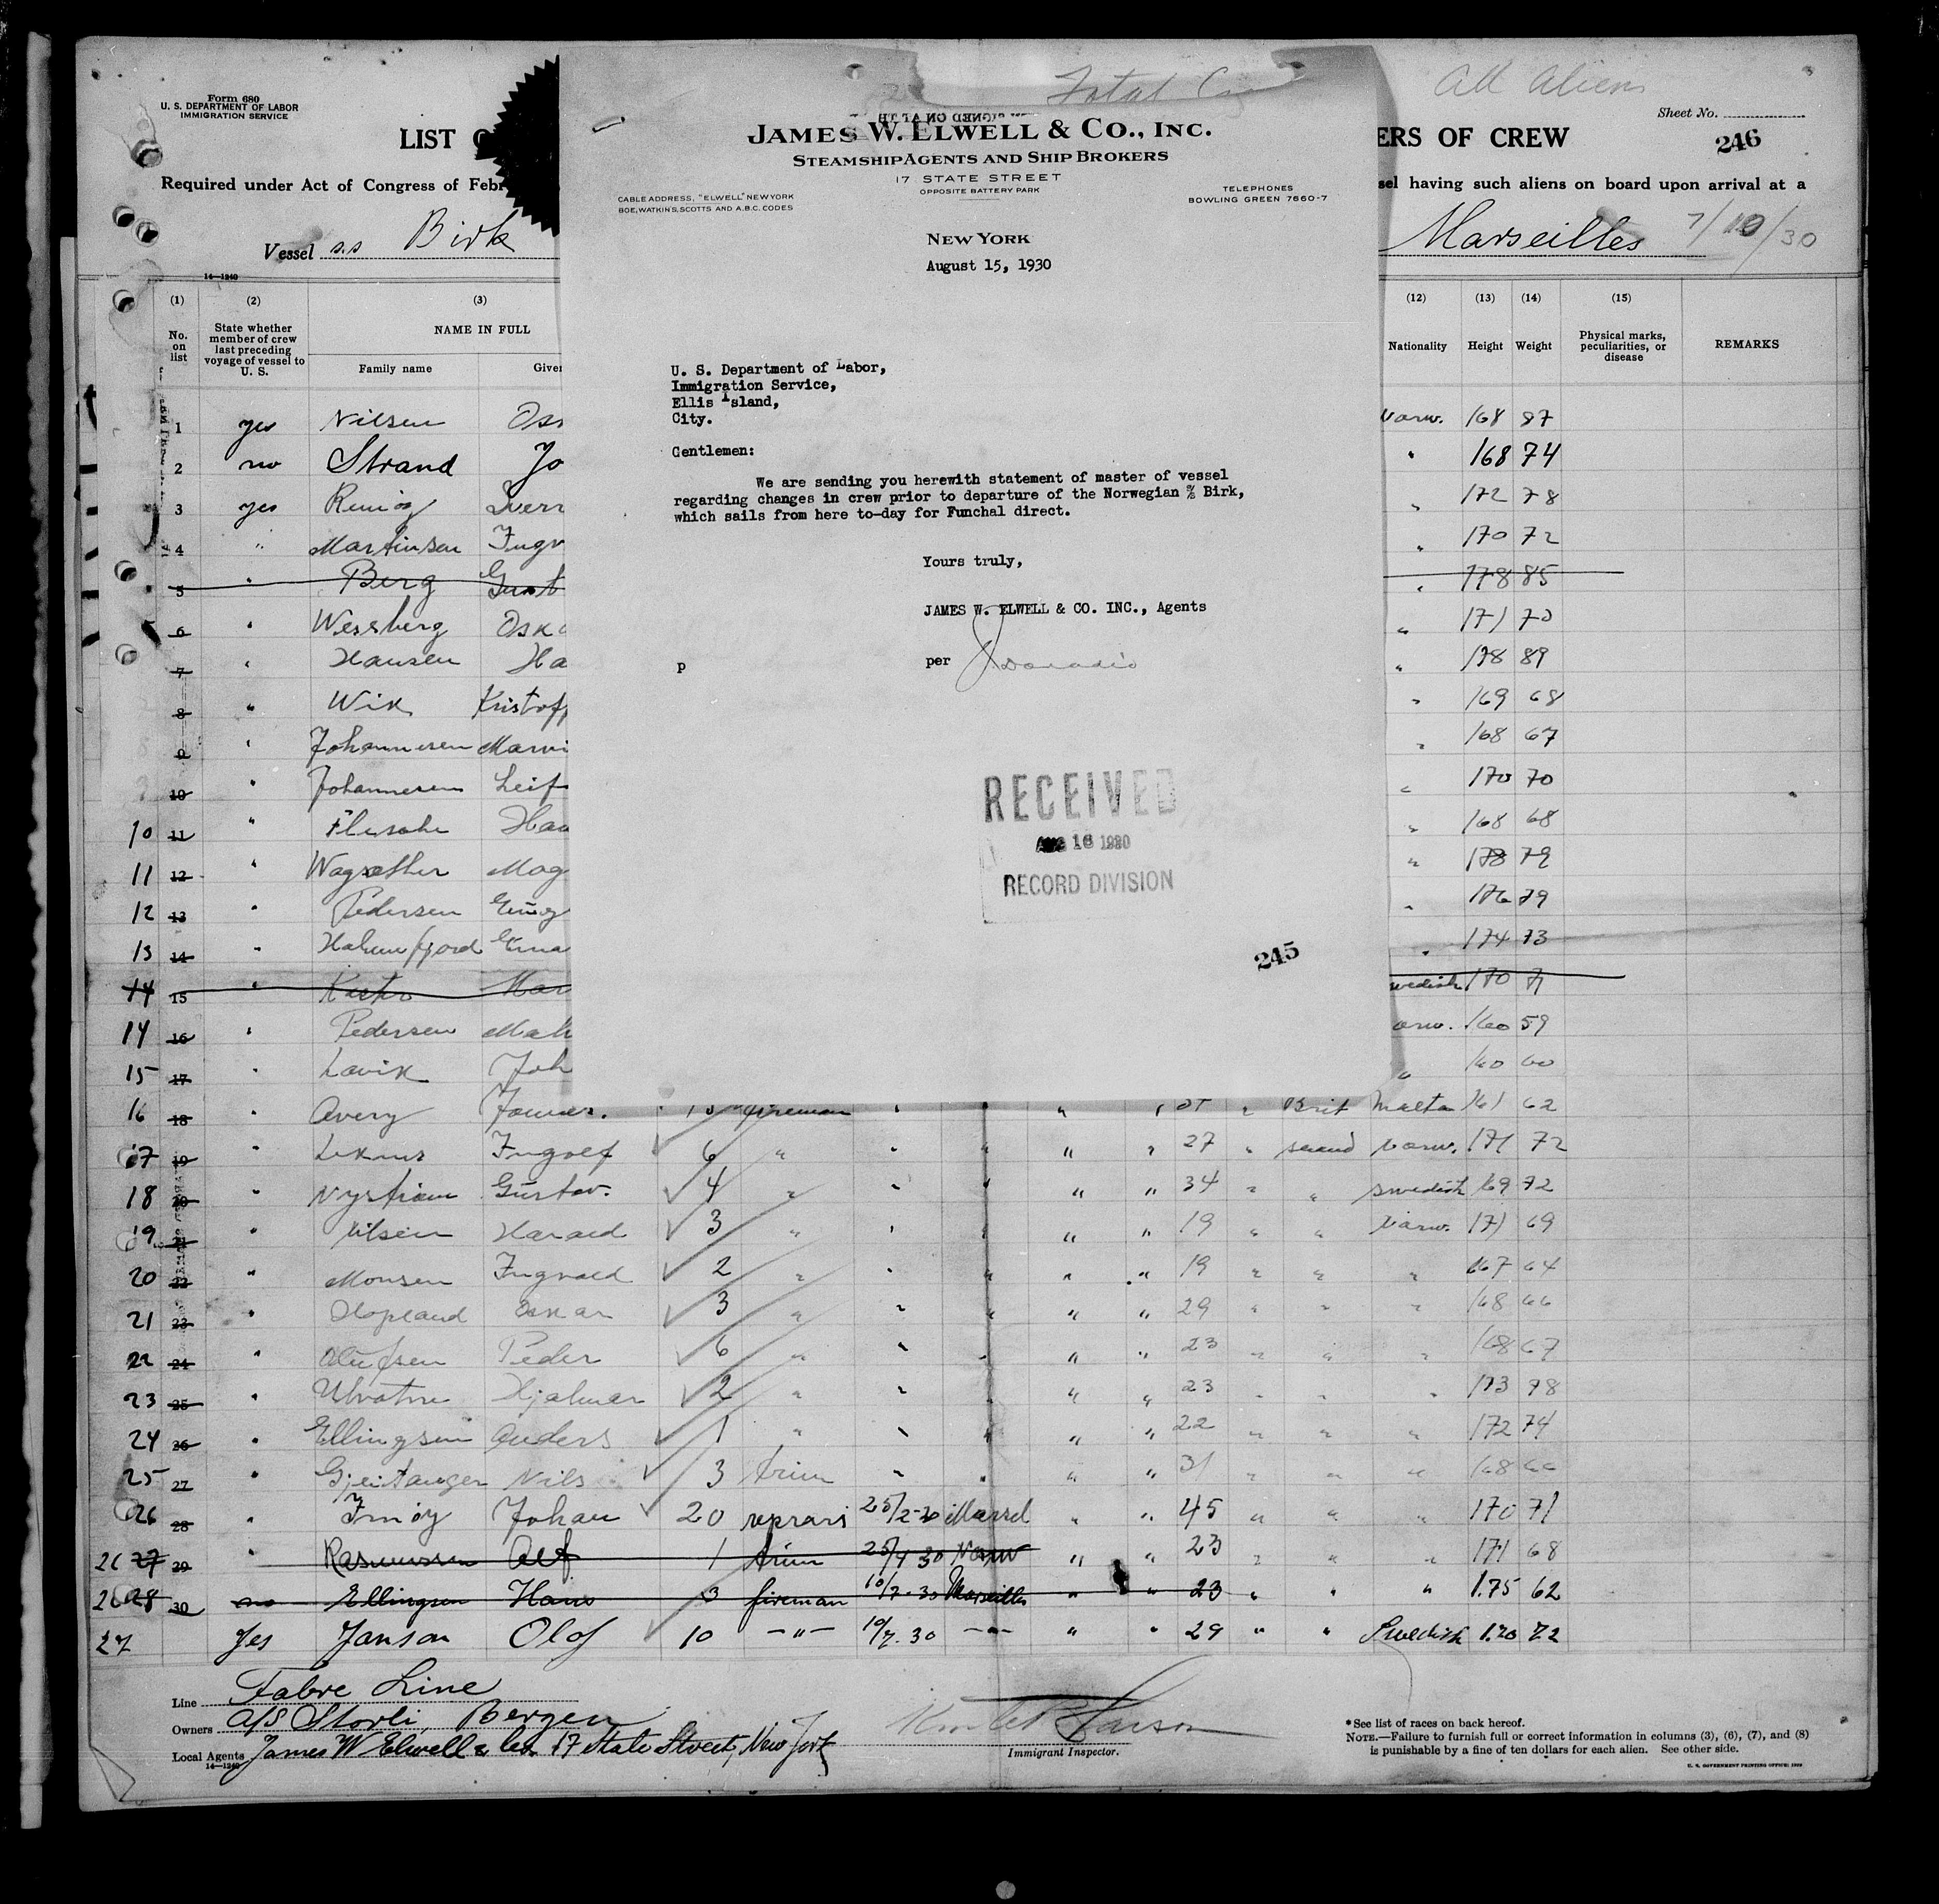 Form 680
U. S. DEPARTMENT OF LABOR
IMMIGRATION SERVICE
LIST
ERS OF CREW
All aliens
Sheet No.
246
Required under Act of Congress of Febr
sel having such aliens on board upon arrival at a
Vessel s.s Birk
Marseilles 7/10/30
14—1240
Total
JAMES W. ELWELL & CO., INC.
STEAMSHIP AGENTS AND SHIP BROKERS
17 STATE STREET
OPPOSITE BATTERY PARK
CABLE ADDRESS, "ELWELL" NEW YORK
BOE, WATKINS, SCOTTS AND A.B.C. CODES
TELEPHONES
BOWLING GREEN 7660-7
NEW YORK
August 15, 1930
U. S. Department of Labor,
Immigration Service,
Ellis Island,
City.
Gentlemen:
We are sending you herewith statement of master of vessel
regarding changes in crew prior to departure of the Norwegian s/s Birk,
which sails from here to-day for Funchal direct.
Yours truly,
JAMES W. ELWELL & CO. INC., Agents
p per
RECEIVED
AUG 16 1930
RECORD DIVISION
245
(1) (2) (3) (12) (13) (14) (15)
No. on list
State whether member of crew last preceding voyage of vessel to U. S.
NAME IN FULL
Family name
Given
Nationality Height Weight
Physical marks, peculiarities, or disease
REMARKS
1 yes Nilsen Os 168 87
2 no Strand Jo " 168 74
3 yes Sverr " 172 78
4 " Martinsen Ingv " 170 72
5 " Berg Gust " 178 85
6 " Wessberg Oska " 171 70
7 " Hansen Ha " 178 89
8 " Wik Kristoff " 169 68
9 " Johannesen Marvi " 168 67
10 " Johannesen Leif " 170 70
10 11 " Ha " 168 68
11 12 " Mag " 178 79
12 13 " Pedersen " 176 79
13 14 " Eina " 174 73
14 15 " Mar wedish 170 71
14 16 " Pedersen orw. 160 59
15 17 " Lavik Joh " 160 60
16 18 " Avery fireman " " " " Brit Malta 161 62
17 19 " Ingolf 6 " " " " " 27 " scand norw. 171 72
18 20 " Nystrøm Gustav. 4 " " " " " 34 " " Swedish 169 72
19 21 " Nilsen Harald 3 " " " " " 19 " " norw. 171 69
20 22 " Monsen Ingvald 2 " " " " " 19 " " " 167 64
21 23 " Hopland Oskar 3 " " " " " 29 " " " 168 66
22 24 " Olufsen Peder 6 " " " " " 23 " " " 168 67
23 25 " Ulvatne Hjalmar 2 " " " " " 23 " " " 173 78
24 26 " Ellingsen Anders 1 " " " " " 22 " " " 172 74
25 27 " Gjeitanger Nils 3 trim " " " " 31 " " " 168 66
26 28 " Johan 20 25/2-30 " " 45 " " " 170 71
26 27 29 " Rasmussen Alf 1 trim 25/4 30 Norw " " 23 " " " 171 68
26 28 30 no Ellingsen Hans 3 fireman 10/7-30 Marseilles " " 23 " " " 1.75 62
27 Yes Janson Olof 10 —"— 10/7.30 —"— " " 29 " " Swedish 1.70 72
Line Fabre Line
Owners A/S Storli, Bergen
Local Agents James W Elwell & Co. 17 State Street, New York
14—1240
Immigrant Inspector.
*See list of races on back hereof.
NOTE.—Failure to furnish full or correct information in columns (3), (6), (7), and (8)
is punishable by a fine of ten dollars for each alien. See other side.
U. S. GOVERNMENT PRINTING OFFICE: